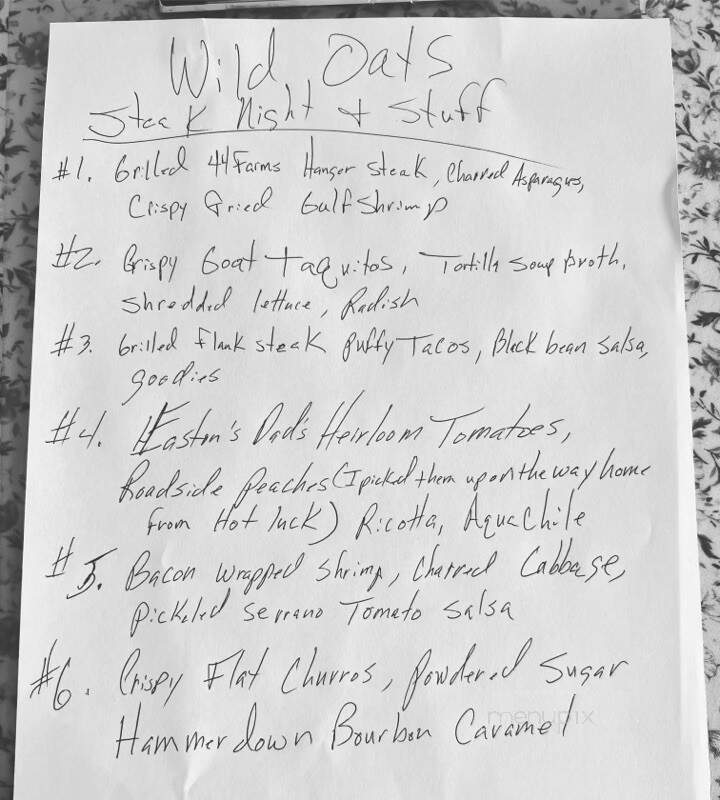 Wild Oats
Steak Night & Stuff
#1. Grilled 44 Farms Hanger Steak, Charred Asparagus,
Crispy Gried Gulf Shrimp
#2. Crispy Goat Taquitos, Tortilla Soup broth,
Shredded lettuce, Radish
#3. Grilled Flank Steak Puffy Tacos, Black bean Salsa,
goodies
#4. Easton's Dad's Heirloom Tomatoes,
Roadside Peaches (I picked them up on the way home
from Hot luck) Ricotta, AquaChile
#5. Bacon wrapped Shrimp, Charred Cabbage,
pickled Serrano Tomato Salsa
#6. Crispy Flat Churros, Powdered Sugar
Hammerdown Bourbon Caramel
menupix